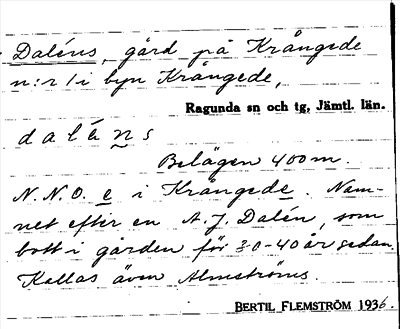 Daléns, gård på Krångede
n:r 1 i byn Krångede,
Ragunda sn och tg, Jämtl. län.
d a l é n s
Belägen 400 m.
N.N.O. e i Krångede. Nam-
net efter en A. J. Dalén, som
bott i gården för 30-40 år sedan.
Kallas även Almströms.
BERTIL FLEMSTRÖM 1936.